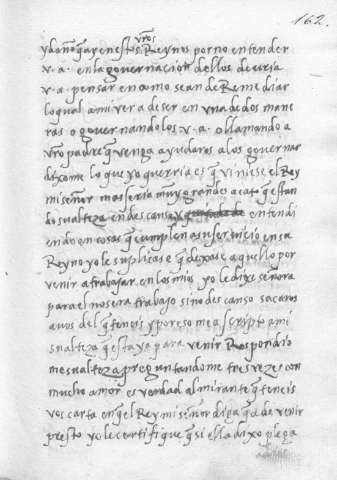 162.
vr̃os
y daño q̃ ay en estos Reynos por no entender
v. a. en la governaçion dellos devria
v. a. pensar en como sean de Remediar
lo qual a mi ver a de ser en una de dos mane
ras o governandolos v. a. o llamando a
vr̃o padre q̃ venga ayudaros a los governar
dixome lo que yo querria es q̃ viniese el Rey
mi señor mas seria muy grande acato q̃ estan
do su alteza en descanso y entendi
endo en cosas q̃ cumplen a su serviçio en su
Reyno yo le suplicase q̃ dexase aquello por
venir a trabajar en los mios yo le dixe señora
para el no sera trabajo sino descanso sacaros
a vos del q̃ teneis y por eso me a scripto a mi
su alteza q̃ esta ya para venir Respondio
me su alteza preguntandome tres vezes con
mucho amor es verdad almirante q̃ teneis
vos carta en q̃ el Rey mi señor diga q̃ a de venir
presto yo le certifique q̃ si ella dixo plega
a dios